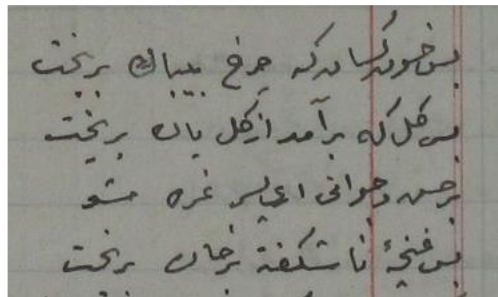 بس خون کسان که چرخ بیباک بریخت
بس گل که برآمد از گل پاک بریخت
بر حسن و جوانی ای پسر غره مشو
بس غنچهٔ ناشکفته بر خاک بریخت